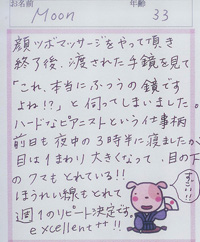 お名前 Moon 年齢 33
顔ツボマッサージをやって頂き
終了後、渡された手鏡を見て
「これ、本当にふつうの鏡です
よね!?」と伺ってしまいました。
ハードなピアニストという仕事柄
前日も夜中の3時半に寝ましたが
目はまわり大きくなって、目の下
のクマもとれている!!
ほうれい線もとれて
週1のリピート決定です。
excellent!!
すごい!!